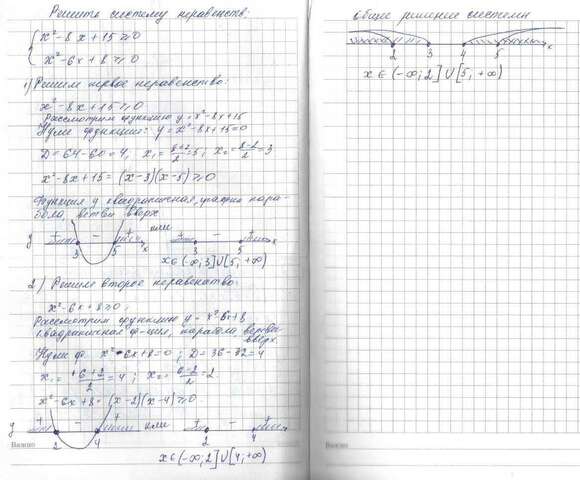 Решить систему неравенств:
x²-8x+15≥0
x²-6x+8≥0
1) Решим первое неравенство:
x²-8x+15≥0
Рассмотрим функцию y=x²-8x+15
Нули функции: y=x²-8x+15=0
D=64-60=4, x₁=(8+2)/2=5; x₂=(8-2)/2=3
x²-8x+15=(x-3)(x-5)≥0
Функция y квадратичная, график пара-
бола, ветви вверх
y + - + x или + - + x
3 5 3 5
x∈(-∞;3]∪[5;+∞)
2) Решим второе неравенство:
x²-6x+8≥0;
Рассмотрим функцию y=x²-6x+8
квадратичная ф-ция, парабола, ветви
вверх
Нули ф. x²-6x+8=0; D=36-32=4
x₁=(+6+2)/2=4; x₂=(6-2)/2=2
x²-6x+8=(x-2)(x-4)≥0
y + - + или + - +
2 4 2 4
x∈(-∞;2]∪[4;+∞)
Важно
Общее решение системы
2 3 4 5 x
x∈(-∞;2]∪[5;+∞)
Важно